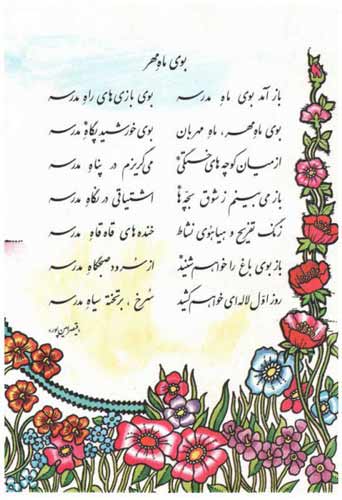 بوی ماهِ مهر
باز آمد بوی ماهِ مدرسه بوی بازی های راهِ مدرسه
بوی ماهِ مهر، ماهِ مهربان بوی خورشیدِ پگاهِ مدرسه
از میان کوچه های خستگی می گریزم در پناهِ مدرسه
باز می بینم ز شوق بچّه ها اشتیاقی در نگاهِ مدرسه
زنگ تفریح و هیاهوی نشاط خنده های قاه قاهِ مدرسه
باز بوی باغ را خواهم شنید از سرودِ صبحگاهِ مدرسه
روز اوّل لاله ای خواهم کشید سُرخ ، بر تخته سیاهِ مدرسه
«قیصر امین پور»